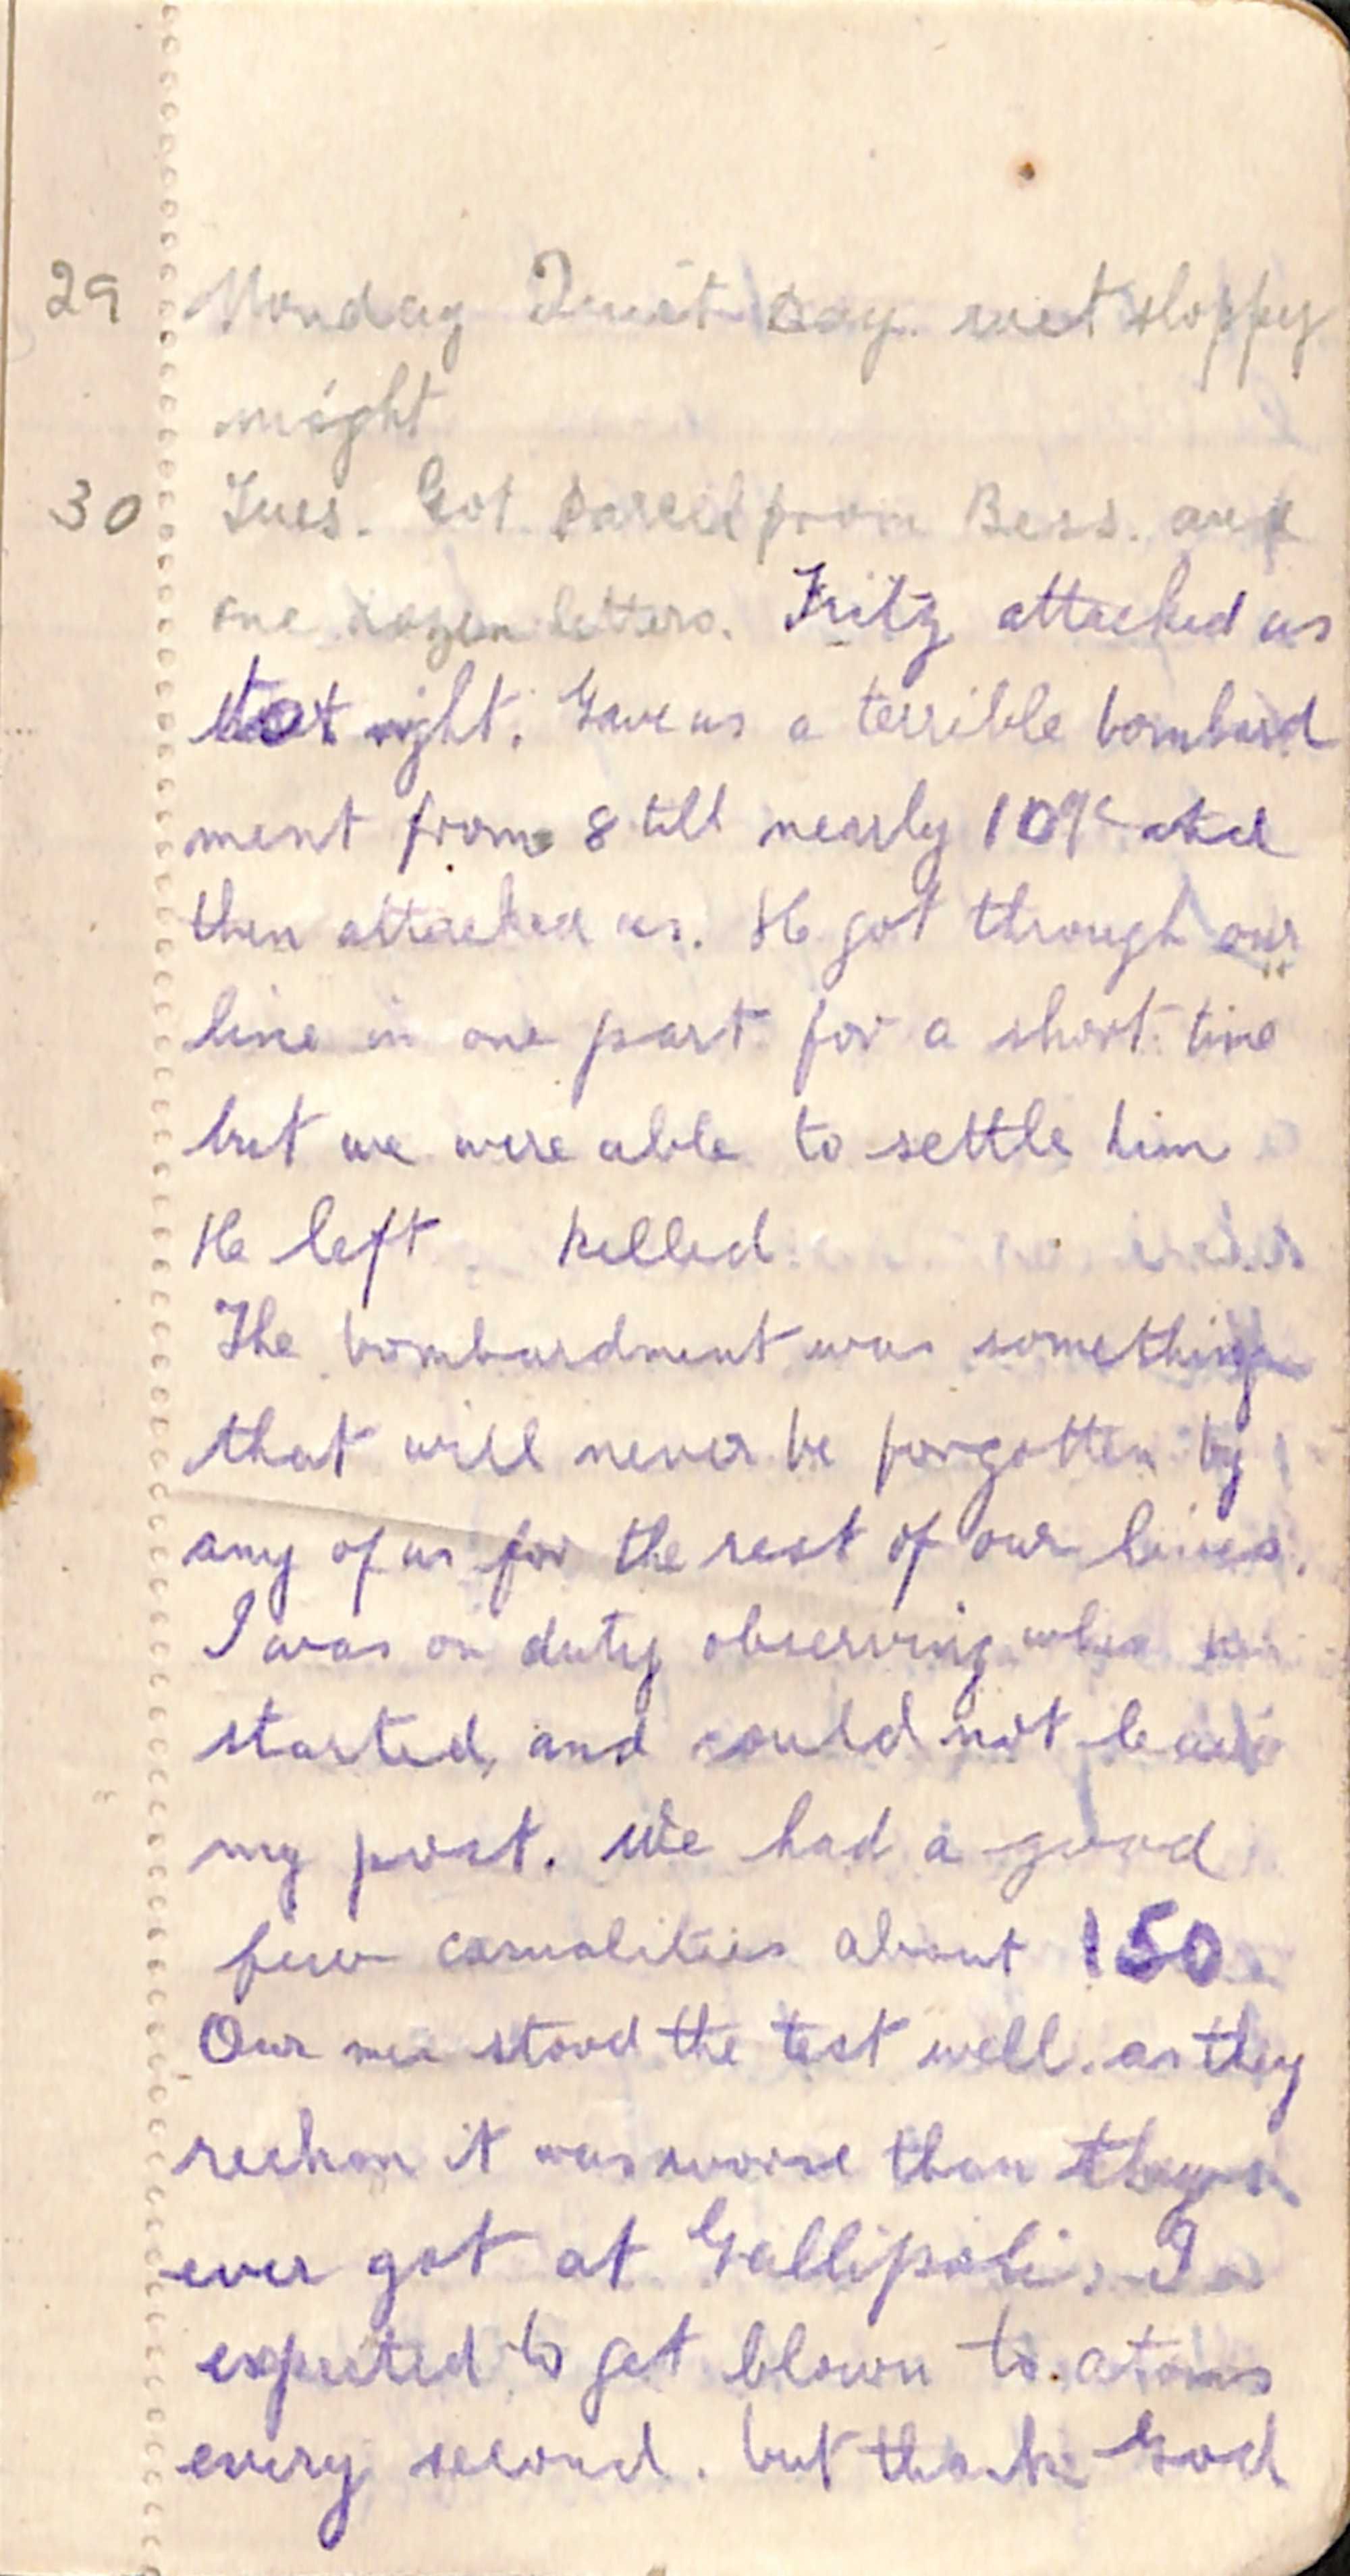 29 Monday Quiet day. wet sloppy
night
30 Tues. Got parcel from Bess. and
one dozen letters. Fritz attacked us
ight. Gave us a terrible bombard
ment from 8 till nearly 10 and
then attacked us. He got through our
line in one part for a short time
but we were able to settle him
He left killed
The bombardment was something
that will never be forgotten by
any of us for the rest of our lives.
I was on duty observing when
started, and could not leave
my post. We had a good
few casualities about 150
Our men stood the test well. as they
reckon it was worse than they
ever got at Gallipoli. I
expected to get blown to atoms
every second. but thank God